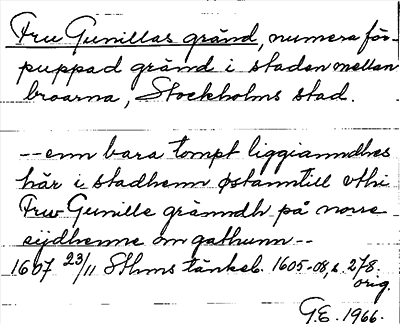 Fru Gunillas gränd, numera för-
puppad gränd i staden mellan
broarna, Stockholms stad.
--enn bara tompt liggianndhes
här i stadhenn østanntill vthi
Frw Gunille gränndh på norre
sijdhenne om gathunn--
1607 23/11 Sthms tänkeb. 1605-08, s. 278.
orig.
G.E. 1966.